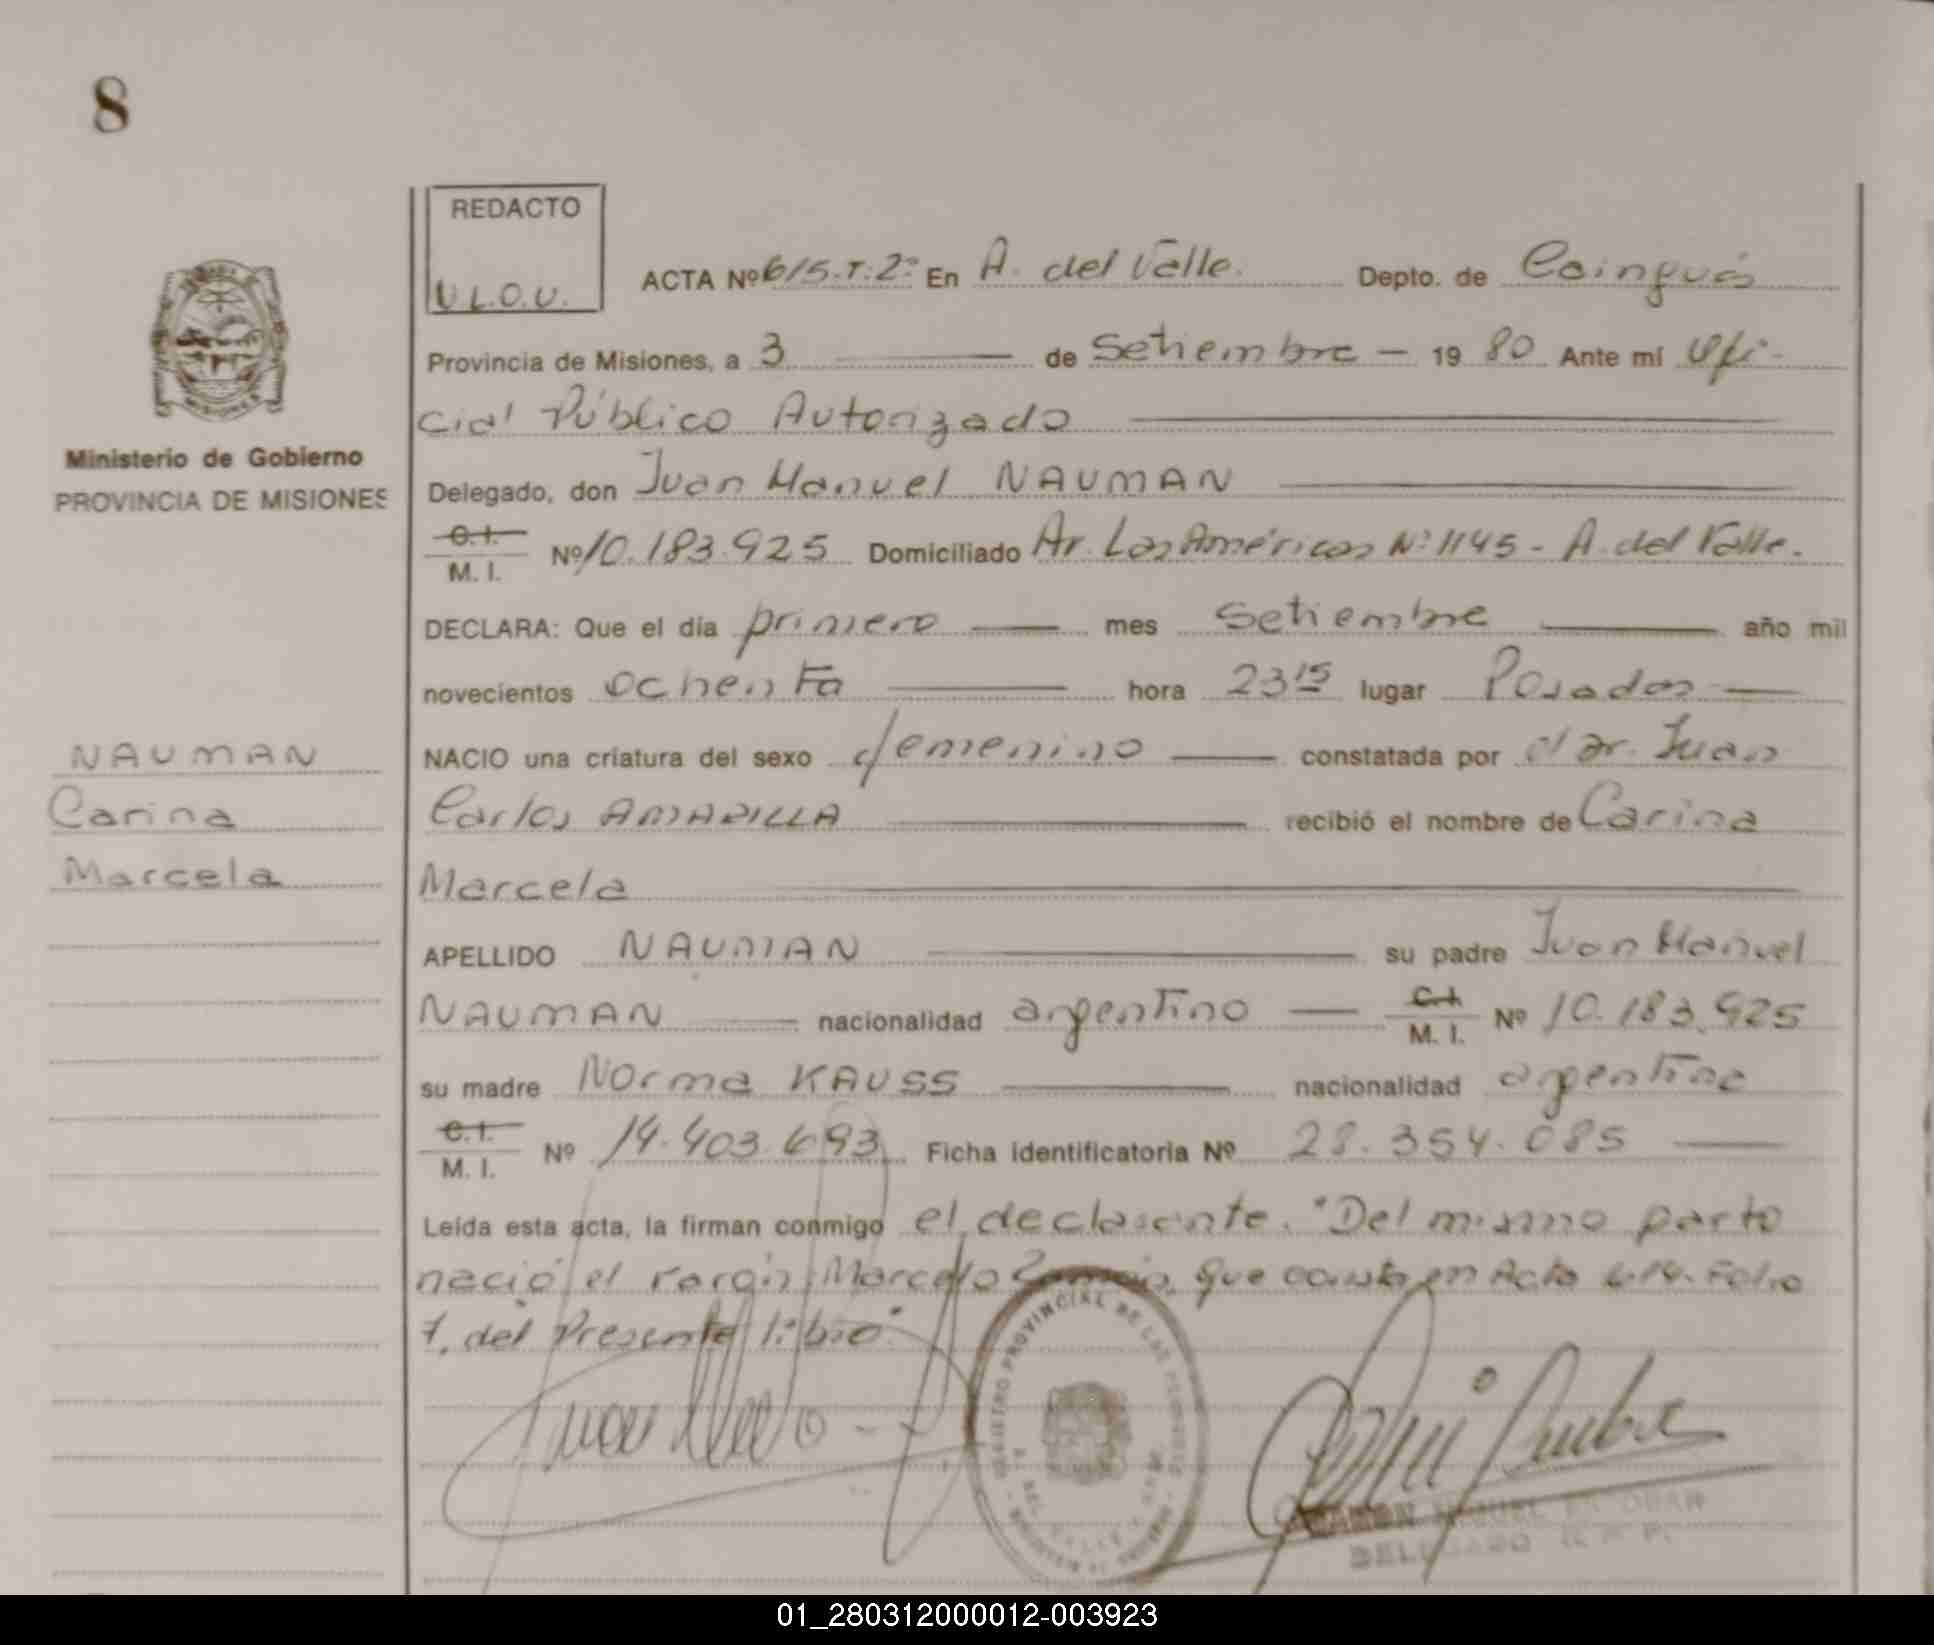 8
REDACTO
V.L.O.U.
ACTA Nº 615.T:2º En A. del Valle. Depto. de Cainguás
Provincia de Misiones, a 3 de Setiembre - 19 80 Ante mí Ofi-
cial Público Autorizado
Delegado, don Juan Manuel NAUMAN
C.I. M. I. Nº 10.183.925 Domiciliado Av. Las Américas Nº 1145 - A. del Valle.
DECLARA: Que el día primero mes Setiembre año mil
novecientos ochenta hora 23 15 lugar Posadas
NACIO una criatura del sexo femenino constatada por el Dr. Juan
Carlos AMARILLA recibió el nombre de Carina
Marcela
APELLIDO NAUMAN su padre Juan Manuel
NAUMAN nacionalidad argentino C.I. M. I. Nº 10.183.925
su madre Norma KAUSS nacionalidad argentina
C.I. M. I. Nº 14.403.693 Ficha identificatoria Nº 28.354.085
Leída esta acta, la firman conmigo el declarante. "Del mismo parto
nació el varón: Marcelo que consta en Acta 614. Folio
7, del Presente libro".
REGISTRO PROVINCIAL DE LAS PERSONAS
DELEGADO R. P. P.
Ministerio de Gobierno
PROVINCIA DE MISIONES
NAUMAN
Carina
Marcela
01_280312000012-003923